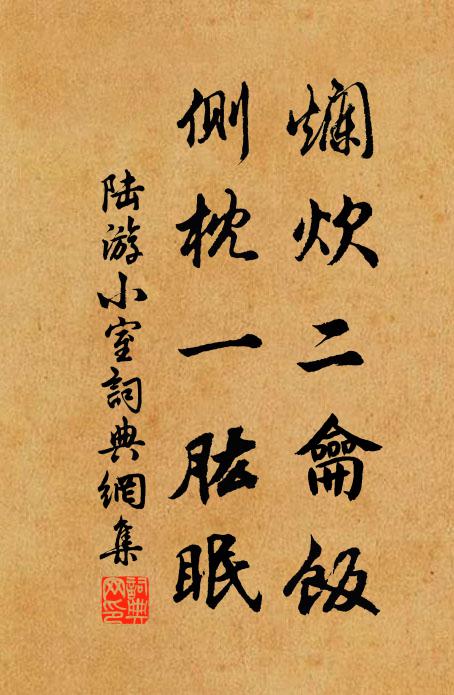 爛炊二龠飯
側枕一肱眠
陆游小室詞典網集
詞典網印